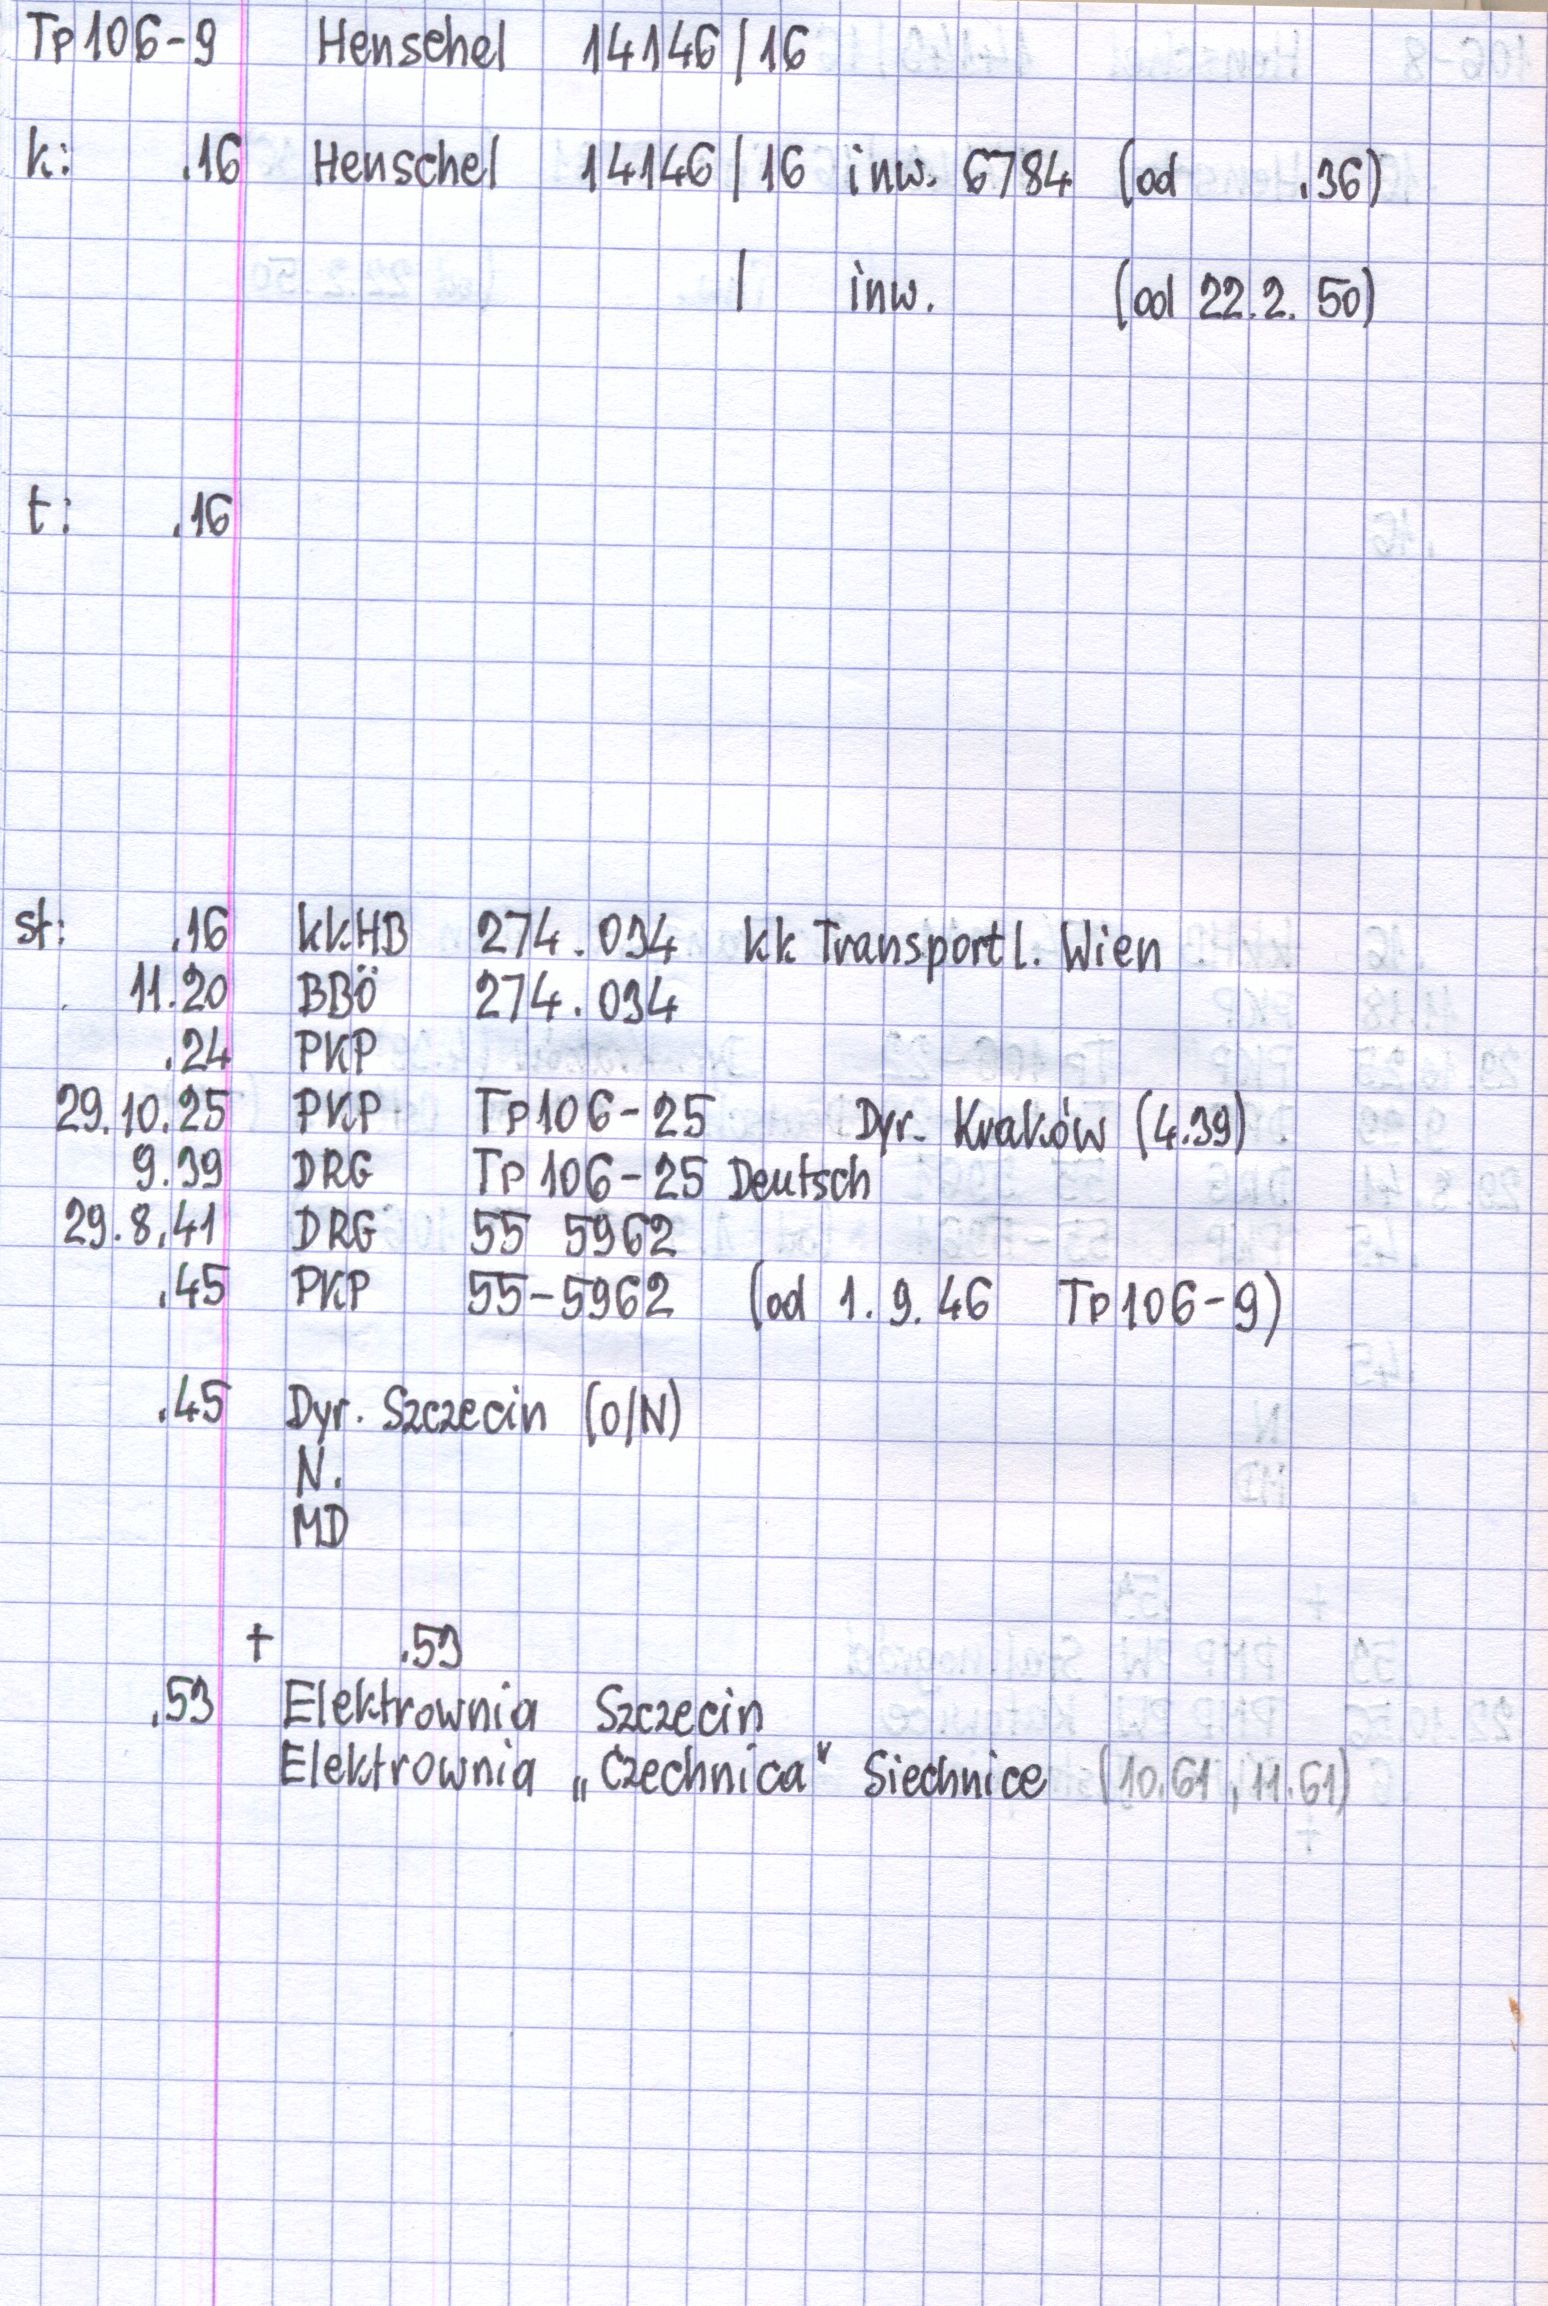 Tp106-9 Henschel 14146/16
k: .16 Henschel 14146/16 inw. 6784 (od .36)
/ inw. (od 22.2.50)
t: .16
st: .16 kkHB 274.034 kk Transportl. Wien
11.20 BBÖ 274.034
.24 PKP
29.10.25 PKP Tp106-25 Dyr. Kraków (4.39)
9.39 DRG Tp106-25 Deutsch
29.8.41 DRG 55 5962
.45 PKP 55-5962 (od 1.9.46 Tp106-9)
.45 Dyr. Szczecin (O/N)
N.
MD
+ .53
.53 Elektrownia Szczecin
Elektrownia „Czechnica" Siechnice (10.61, 11.61)